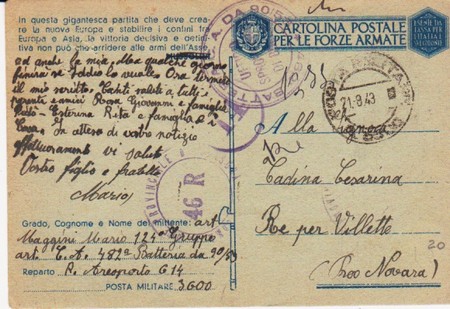 In questa gigantesca partita che deve crea-
re la nuova Europa e stabilire i confini tra
Europa e Asia, la vittoria decisiva e defini-
tiva non può che arridere alle armi dell'Asse.
ed anche la mia. Ma qualche giorno
finirà se Iddio lo vuole. Ora termino
il mio scritto. Tanti saluti a tutti i
parenti e amici Rosa Giovanni e famiglia
Esterina Rita e famiglia e
In attesa di vostro notizie
affettuosamente vi saluta
Vostro figlio e fratello
Mario
Grado, Cognome e Nome del mittente: art
Maggini Mario 124° Gruppo
art. C.A. 482ª Batteria da 90/53
Reparto P. Areoporto G14
POSTA MILITARE 3600
CARTOLINA POSTALE
PER LE FORZE ARMATE
21.8.43
Alla Signora
Cadina Cesarina
Re per Villette
(Pro Novara)
20
46 R